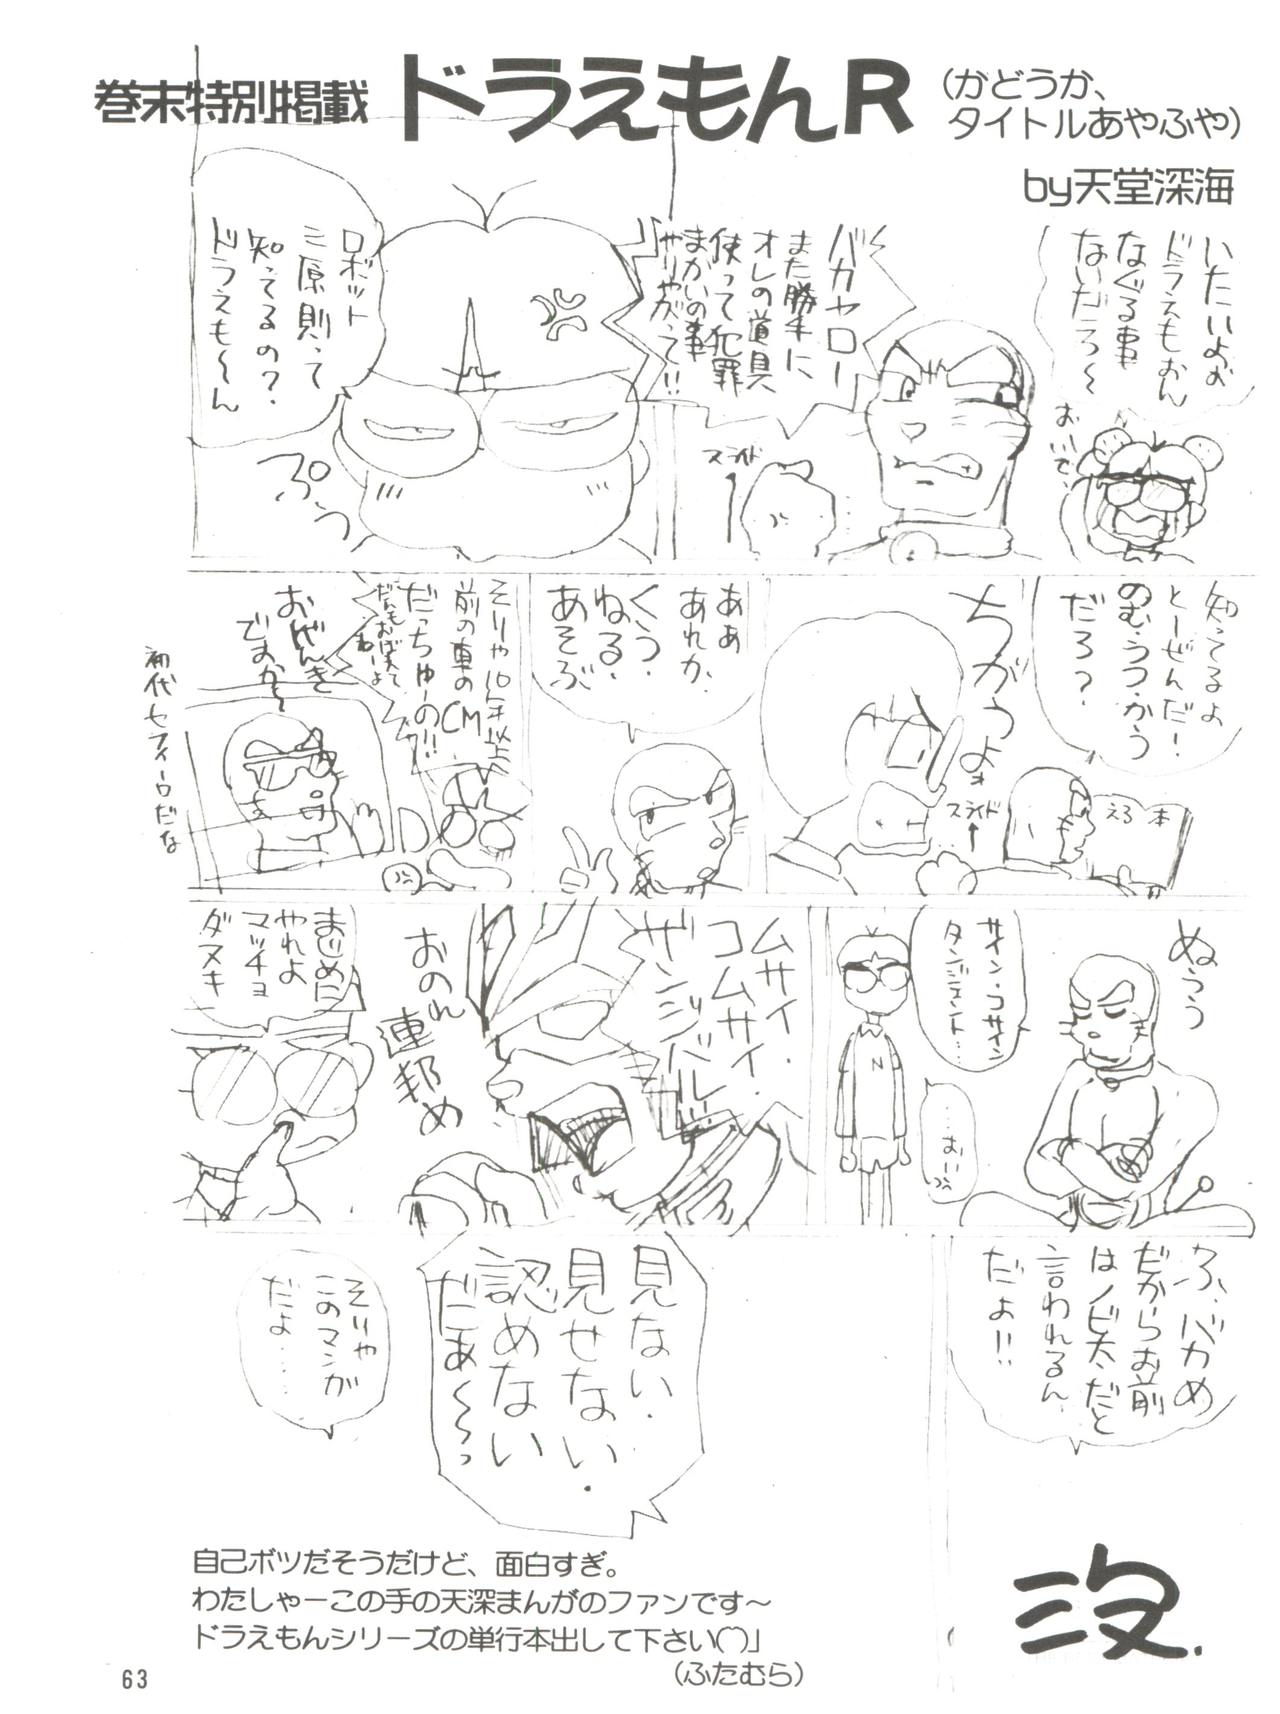 巻末特別掲載
ドラえもんR
(かどうか、
タイトルあやふや)
by天堂深海
いたいよお
ドラえもおん
なぐる事
ないだろ〜
おいで
バカヤロー
また勝手に
オレの道具
使って犯罪
まがいの事
やりやがって!!
スライド
ロボット
三原則って
知ってるの?
ドラえも〜ん
ぷぅ
知ってるよ
とーぜんだ!
のむ・うつ・かう
だろ?
えろ本
スライド
ちがうよぉ
ああ
あれか、
くう・
ねる・
あそぶ
そりゃ10年以上
前の車のCM
だっちゅーの!!
だれもおぼえて
ねーよ
おげんき
ですか〜
初代セフィーロだな
ぬうう
サイン・コサイン
タンジェント…
……おい
N
ムサイ・
コムサイ・
ザンジバル!!
おのれ
連邦め
まじめに
やれよ
マッチョ
ダヌキ
ふ、バカめ
だからお前
はノビ太だと
言われるん
だよ!!
見ない・
見せない・
認めない
だぁ〜〜っ
そりゃ
このマンガ
だよ……
没.
自己ボツだそうだけど、面白すぎ。
わたしゃーこの手の天深まんがのファンです〜
ドラえもんシリーズの単行本出して下さい(^^)」
(ふたむら)
63